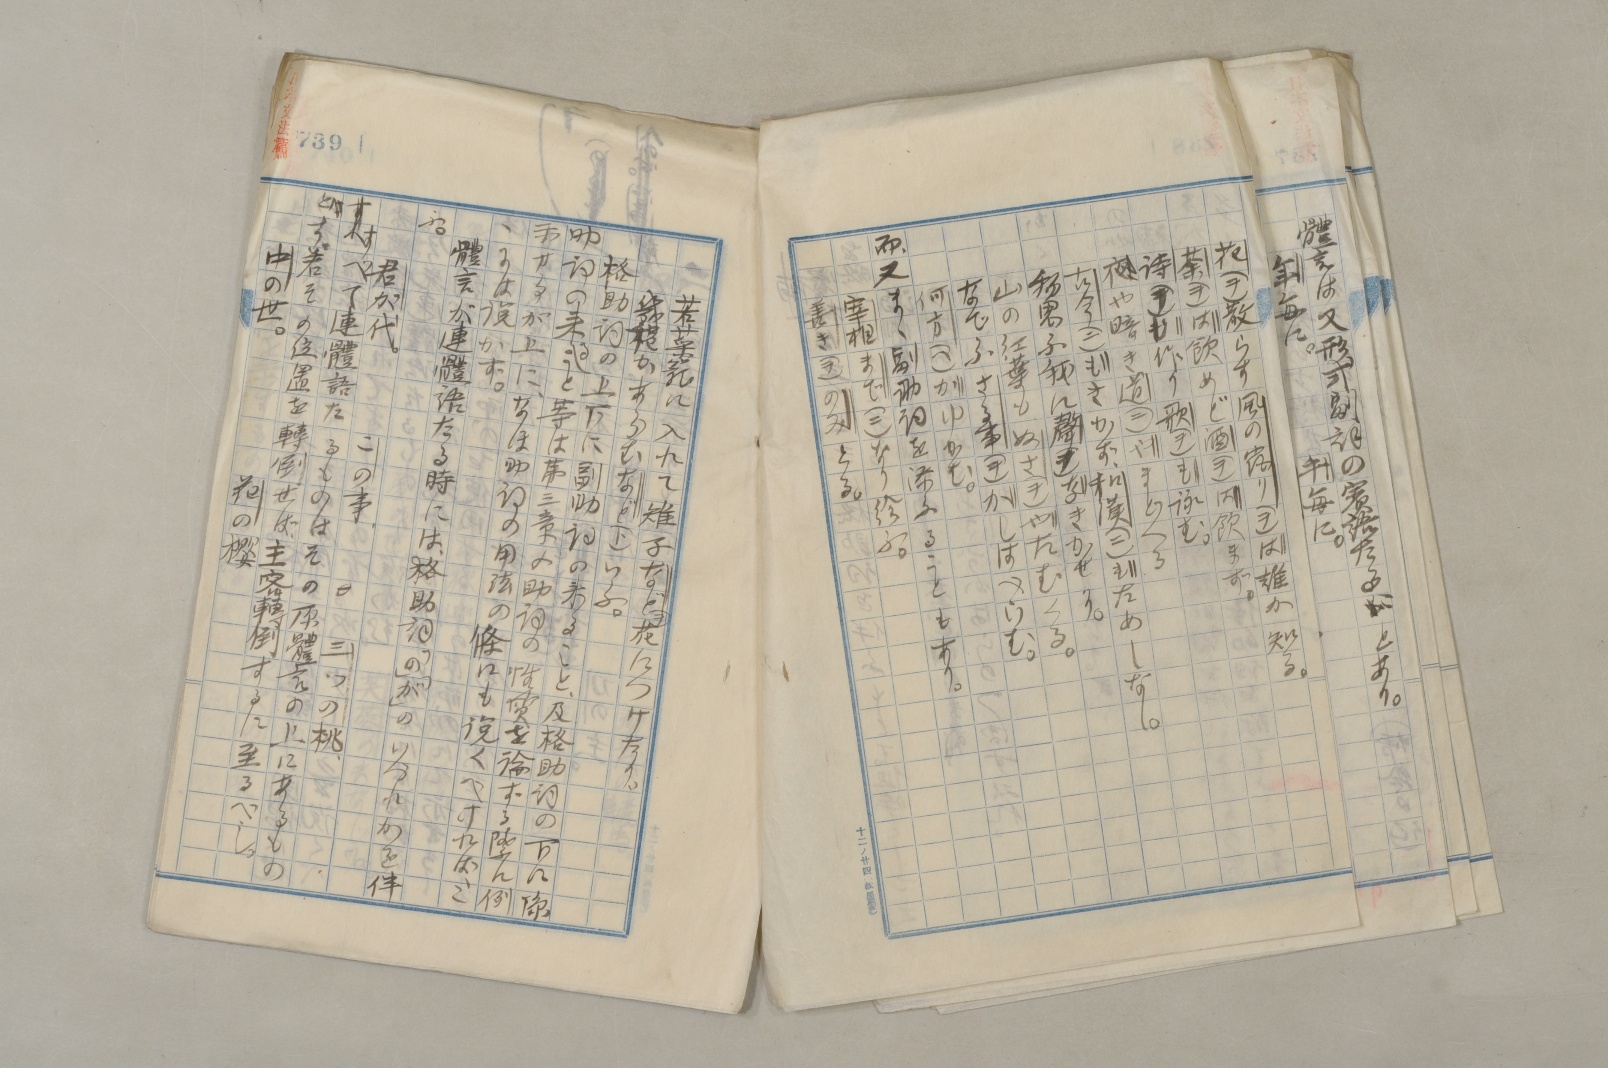 體言は又形式副詞の賓語たることあり。
年毎に。 年毎に。
花(ヲ)散らす風の宿り(ヲ)ば誰か知る。
茶(ヲ)ば飲めど酒(ヲ)ば飲まず。
詩(ヲ)も作り歌(ヲ)も詠む。
夜や暗き道(ニ)やまどへる
古今(ニ)もきかず、和漢(ニ)もためしなし。
我に聲(ヲ)なきかせそ。
山の紅葉もぬさ(ヲ)やたむくる。
なでふさる事(ヲ)かしはべらむ。
何方(ヘ)かゆかむ。
又まゝ副助詞を添ふることもあり。
宰相まで(ニ)なり給ふ。
善き(ヲ)のみとる。
739
若菜籠に入れて雉子など(ヲ)花につけたり。
かあらむなど(ト)いふ。
格助詞の上下に副助詞の來ること、及格助詞の下に係
助詞の來ること等は第三章の助詞の性質を論ずる際に例
示せるが上に、なほ助詞の用法の條にも説くべければこ
ゝには説かず。
體言が連體語たる時には、格助詞「の」「が」のいづれかを伴
ふ。
君が代。 この事 三つの桃、
すべて連體語たるものはその原體言の上にあるもの
とす。若その位置を轉倒せば、主客轉倒するに至るべし。
中の世。 花の櫻